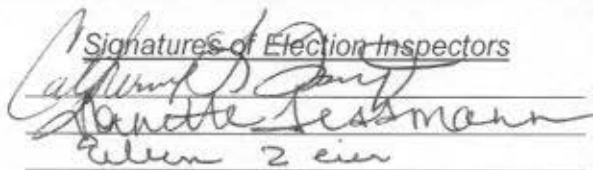 Signatures of Election Inspectors
Catherine S
Nanette Tessmann
Eileen Zeier